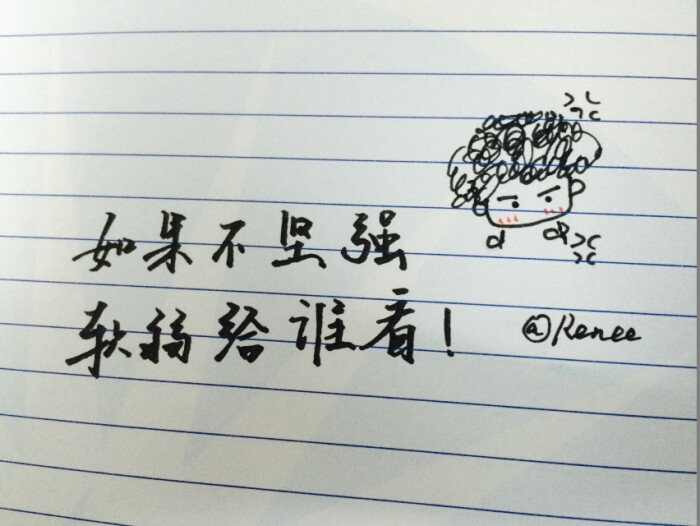 如果不坚强
软弱给谁看!
@Renee